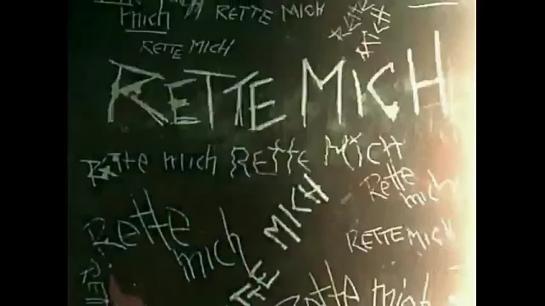 mich
RETTE MICH
RETTE MICH
RETTE MICH
Rette mich
RETTE MICH
Rette mich
Rette mich
RETTE MICH
MICH
Rette mich